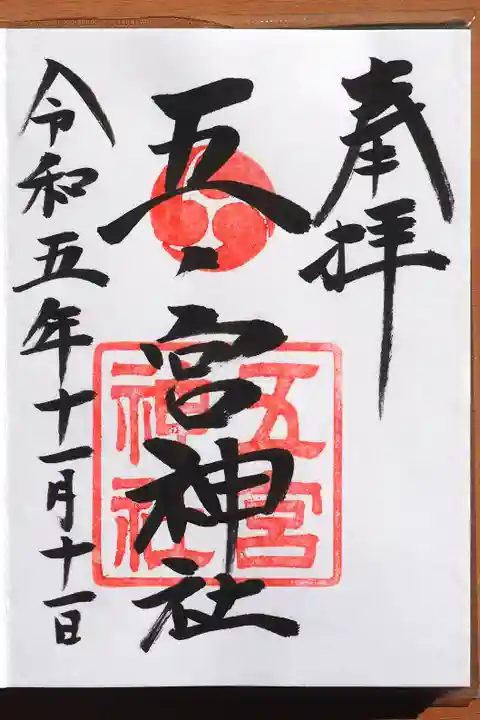 奉拝
五、宮神社
五宮
神社
令和五年十一月十一日